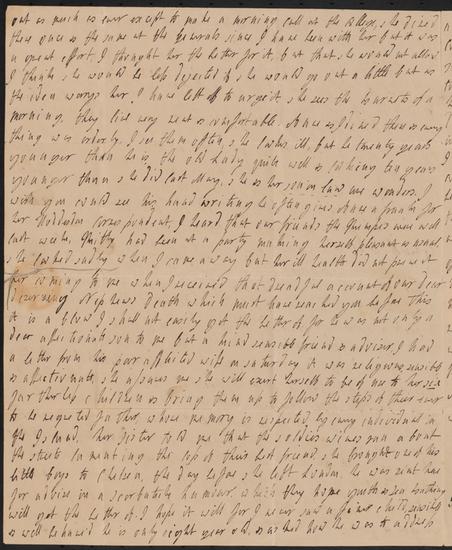 out as much as ever except to make a morning call at the College, she dined
there once at the same at the Generals since I have been with her but it was
a great effort, I thought her the better for it, but that she would not allow
I think she would be less dejected if she would go out a little but as
the idea worrys her I have left off to urge it she sees the Burnetts of a
morning, they live very neat & comfortable. Anne & I dined there & every
thing was orderly. I see them often, she looks ill, but he twenty years
younger than he is the old Lady quite well & looking ten years
younger than she did last May, she & her son in law are wonders. I
wish you could see his hand writing he often gives Anne a frank for
her Hoddesdon correspondent, I heard that our friends the were well
last week, had been at a party making herself pleasant as usual,
she looked sadly when I came away but her ill health did not prevent
her coming to me when I received that dreadful account of our dear
deserving Nephews death which must have reached you before this
it is a blow I shall not easily get the better of for he was not only a
dear affectionate son to me but a kind sensible friend & adviser, I had
a letter from his poor afflicted wife on saturday it was religious sensible
& affectionate, she assures me she will exert herself to be of use to her
fatherless children & bring them up to follow the steps of their ever
to be regretted father, whose memory is respected by every individual in
the Island. Her sister told me that the soldiers wives ran about
the streets lamenting the loss of their best friend, she brought one of his
little boys to Chelsea, the day before she left London. he was sent here
for advice in a scorbutic humour, which they hope
will get the better of. I hope it will for I never saw a finer child, sensible
& well behaved he is only eight year old, & asked how he was to address